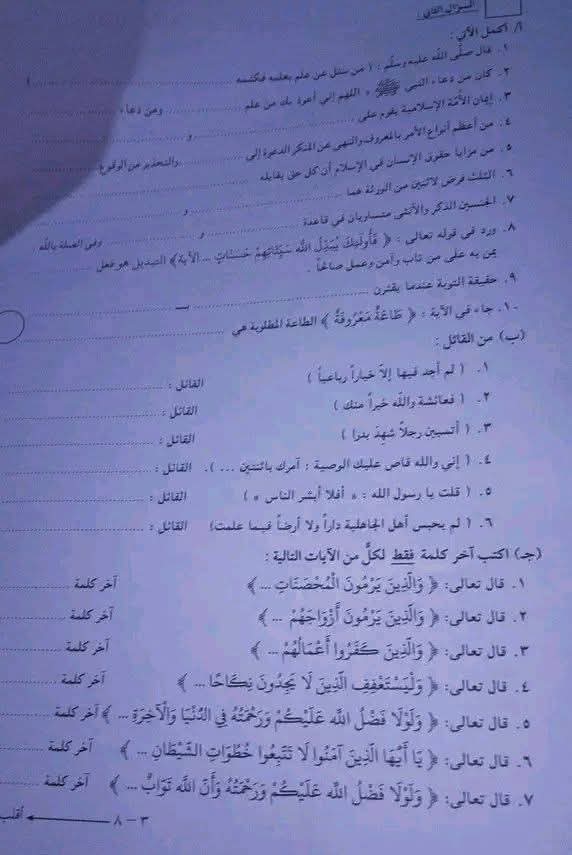 السؤال الثاني :
أ/ أكمل الآتي :
١. قال صلّى الله عليه وسلّم : ( من سئل عن علم يعلمه فكتمه .................... )
٢. كان من دعاء النبي ﷺ « اللهم إني أعوذ بك من علم .................... ومن دعاء ....................
٣. إيمان الأمّة الإسلامية يقوم على .................... و ....................
٤. من أعظم أنواع الأمر بالمعروف والنهي عن المنكر الدعوة إلى .................... والتحذير من الوقوع ....................
٥. من مزايا حقوق الإنسان في الإسلام أن كل حق يقابله ....................
٦. الثلث فرض لاثنين من الورثة هما .................... و ....................
٧. الجنسين الذكر والأنثى متساويان في قاعدة .................... و .................... وفي الصلة بالله
٨. ورد في قوله تعالى : ﴿ فَأُولَٰئِكَ يُبَدِّلُ اللَّهُ سَيِّئَاتِهِمْ حَسَنَاتٍ ... الآية﴾ التبديل هو فعل ....................
يمن به على من تاب وآمن وعمل صالحاً .
٩. حقيقة التوبة عندما يقترن .................... بـ ....................
١٠. جاء في الآية : ﴿ طَاعَةٌ مَعْرُوفَةٌ ﴾ الطاعة المطلوبة هي ....................
(ب) من القائل :
١. ( لم أجد فيها إلاّ خياراً رباعياً ) القائل : ....................
٢. ( فعائشة والله خيراً منك ) القائل : ....................
٣. ( أتسبين رجلاً شهدَ بدرا ) القائل : ....................
٤. ( إني والله قاص عليك الوصية : آمرك باثنتين ... ). القائل : ....................
٥. ( قلت يا رسول الله : « أفلا أبشر الناس » ) القائل : ....................
٦. ( لم يحبس أهل الجاهلية داراً ولا أرضاً فيما علمت) القائل : ....................
(جـ) اكتب آخر كلمة فقط لكلٍّ من الآيات التالية :
١. قال تعالى: ﴿ وَالَّذِينَ يَرْمُونَ الْمُحْصَنَاتِ ... ﴾ آخر كلمة ....................
٢. قال تعالى: ﴿ وَالَّذِينَ يَرْمُونَ أَزْوَاجَهُمْ ... ﴾ آخر كلمة ....................
٣. قال تعالى: ﴿ وَالَّذِينَ كَفَرُوا أَعْمَالُهُمْ ... ﴾ آخر كلمة ....................
٤. قال تعالى: ﴿ وَلْيَسْتَعْفِفِ الَّذِينَ لَا يَجِدُونَ نِكَاحًا ... ﴾ آخر كلمة ....................
٥. قال تعالى: ﴿ وَلَوْلَا فَضْلُ اللَّهِ عَلَيْكُمْ وَرَحْمَتُهُ فِي الدُّنْيَا وَالْآخِرَةِ ... ﴾ آخر كلمة ....................
٦. قال تعالى: ﴿ يَا أَيُّهَا الَّذِينَ آمَنُوا لَا تَتَّبِعُوا خُطُوَاتِ الشَّيْطَانِ ... ﴾ آخر كلمة ....................
٧. قال تعالى: ﴿ وَلَوْلَا فَضْلُ اللَّهِ عَلَيْكُمْ وَرَحْمَتُهُ وَأَنَّ اللَّهَ تَوَّابٌ ... ﴾ آخر كلمة ....................
٣ - ٨ أقلب